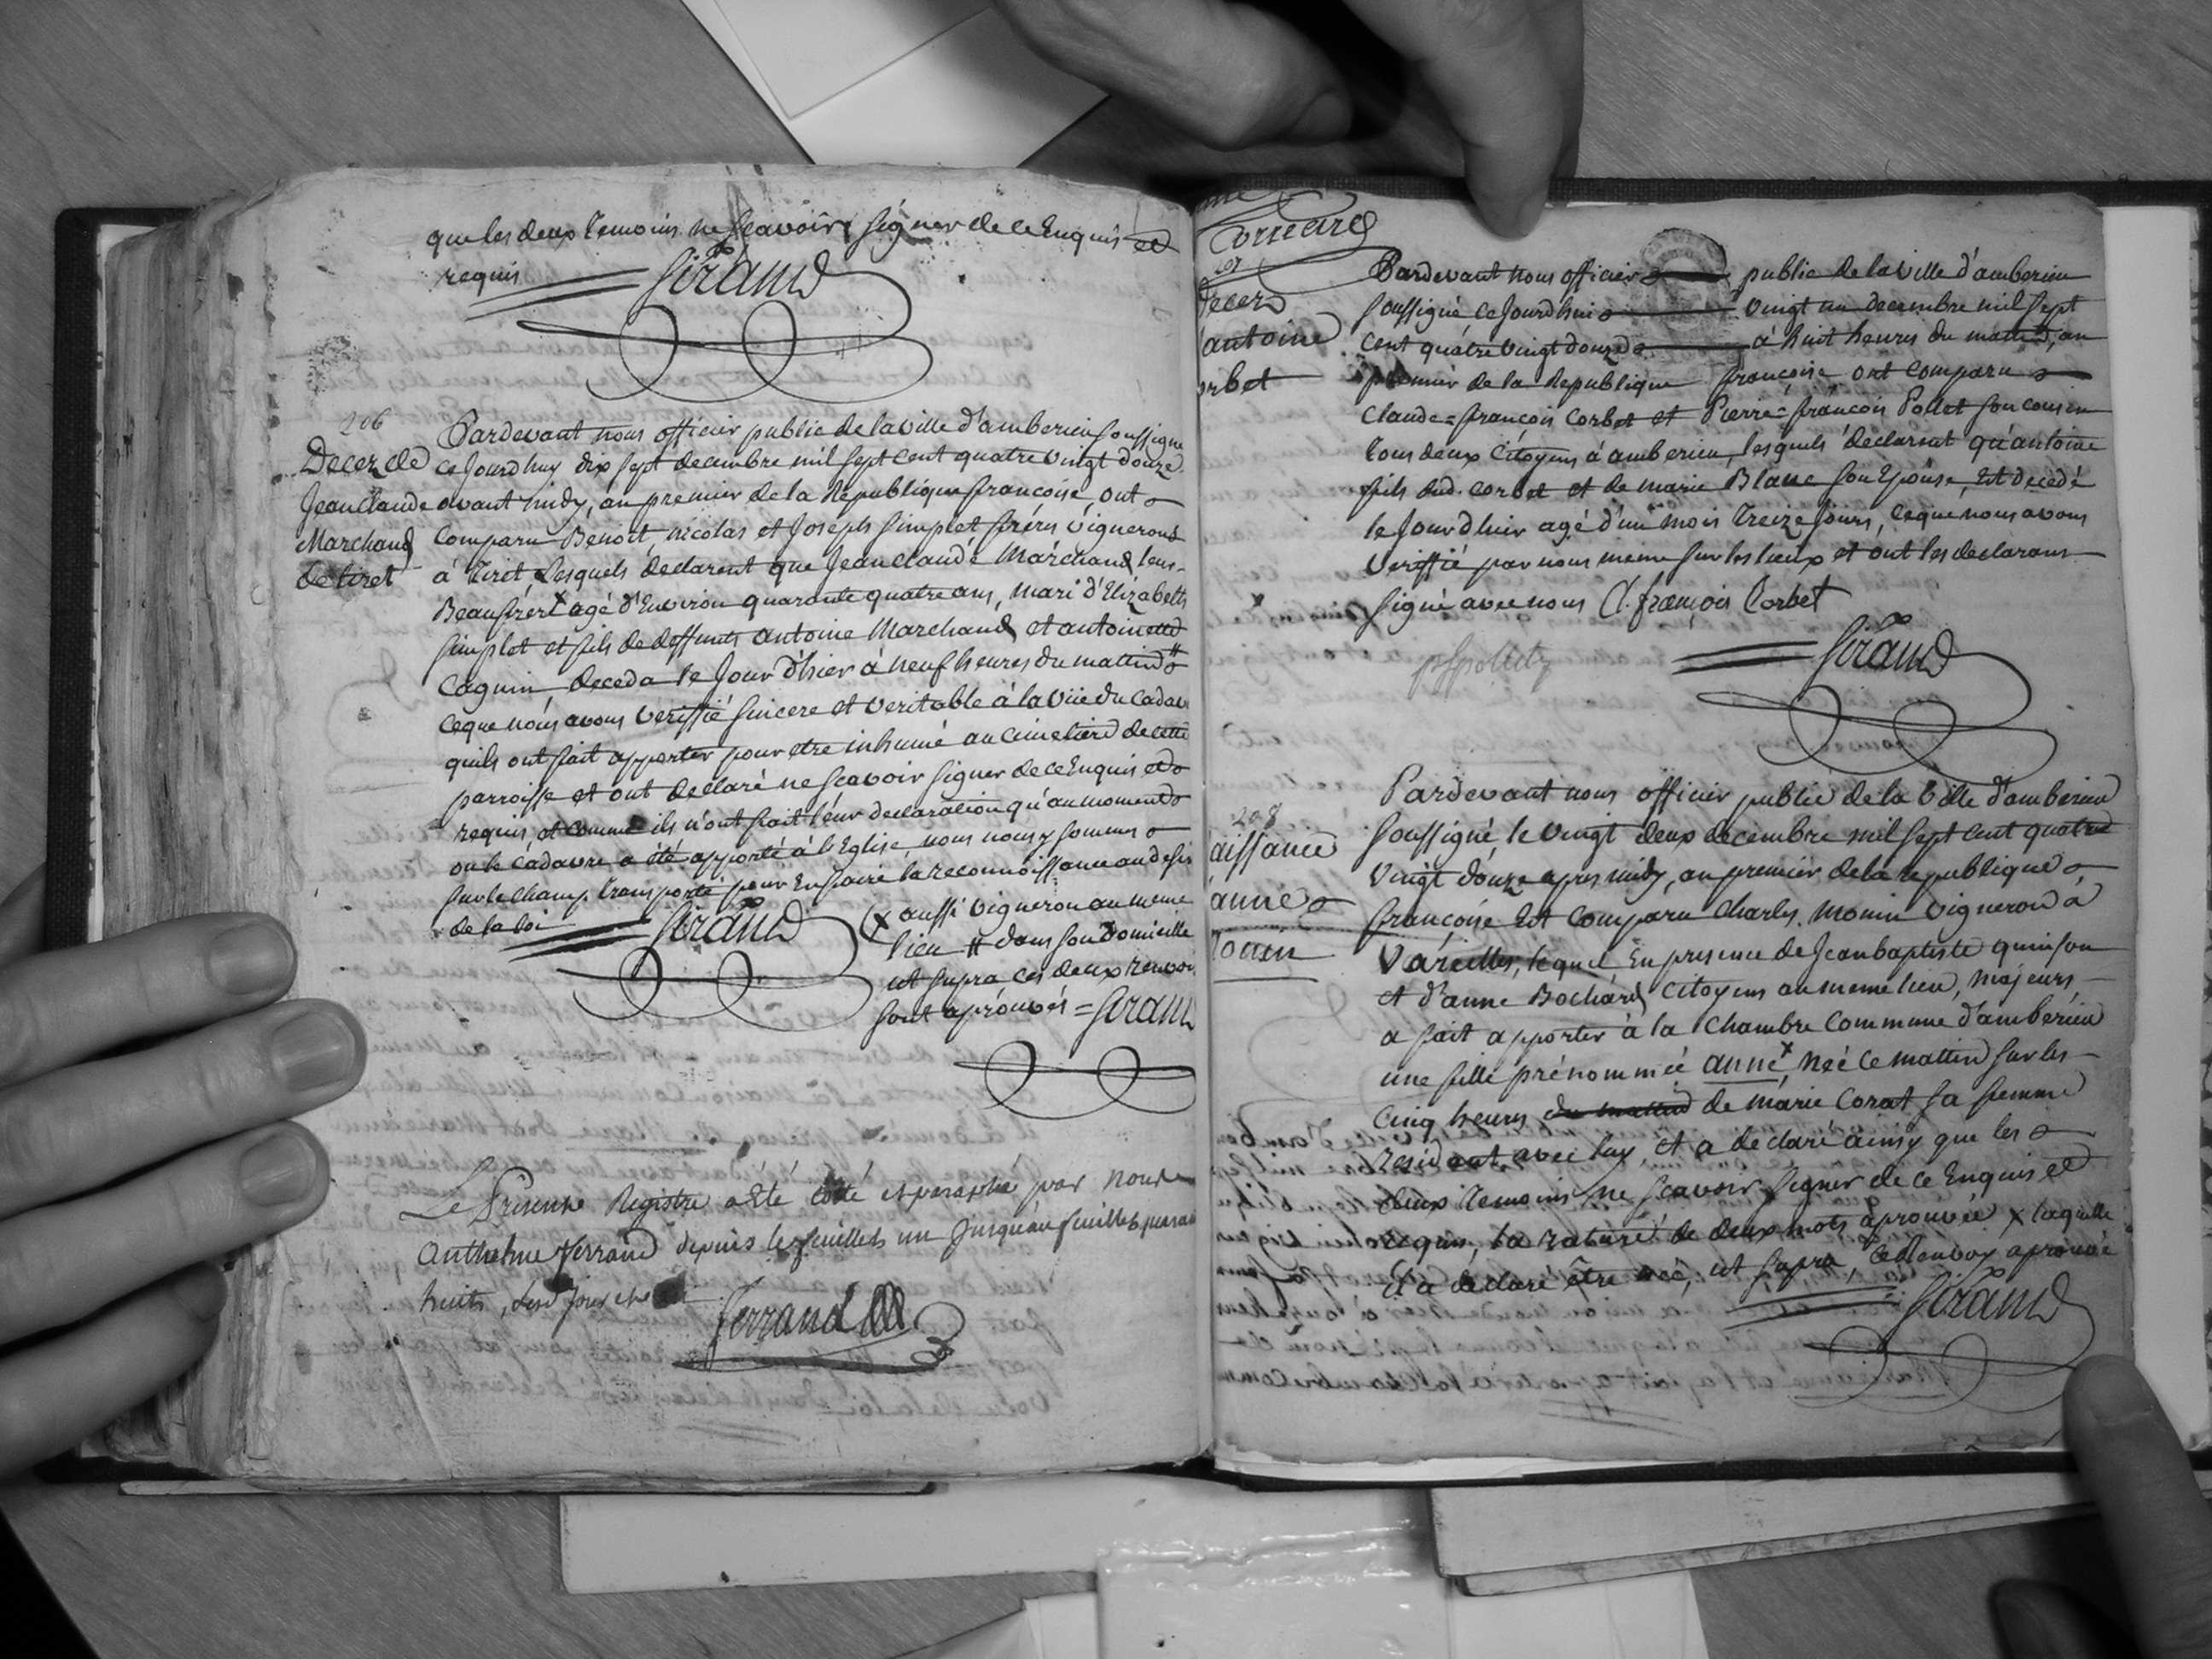 que les deux temoins ne scavoire signer de ce Enquis et
requis Girand
206
Decez de
Jean Claude
Marchand
de tiret
Pardevant nous officier public de la ville d'amberieu soussigne
ce Jourd'huy dix sept decembre mil sept cent quatre vingt douze
avant midy, an premier de la Republique françoise, ont
comparu Benoit, nicolas et Joseph Simplet frères vignerons
à Tiret, Lesquels declarent que Jean Claude Marchand leur
Beaufrere x agé d'Environ quarante quatre ans, mari d'Elizabeth
Simplet et fils de deffunts antoine Marchand et antoinette
Caguin, deceda le Jour d'hier à neuf heures du mattin #
ce que nous avons veriffié sincere et veritable à la vüe du Cadav
quils ont fait apporter pour etre inhumé au cimetiere de cette
parroisse et ont declaré ne scavoir signer de ce Enquis et
requis, et comme ils n'ont fait leur declaration qu'au moment
ou le cadavre a été apporté à l'Eglise, nous nous y sommes
sur le champ transporté pour En faire la reconnoissance au desir
de la loi Girand
(x aussi vigneron au meme
lieu # dans son Domicille
ut supra ces deux renvoi
sont aprouvés = Giran
Le Présente Registre a Eté coté et paraphé par nous
anthelme ferrand depuis le feuillets un Jusqu'au feuillets quaran
huits,
ferrand
Cornard
Decez
antoine
orbet
Pardevant nous officier public de la ville d'amberieu
soussigné ce Jourd'hui vingt un decembre mil sept
cent quatre vingt douze à huit heures du mattin, an
premier de la Republique françoise ont comparu
Claude=françois Corbet et Pierre=françois Pollet son cousin
tous deux Citoyens à amberieu, lesquels declarent qu'antoine
fils dud. Corbet et de marie Blanc son Epouse, Est decedé
le Jour d'hier agé d'un mois treize Jours, ce que nous avons
veriffié par nous meme sur les lieux et ont les declarans
signé avec nous C. françois Corbet
Girand
208
aissance
anne
onin
Pardevant nous officier public de la ville d'amberieu
soussigné, le vingt deux decembre mil sept cent quatre
vingt douze apres midy, an premier de la republique
françoise Est comparu Charles monin vigneron à
Vareilles, lequel En presence de Jean baptiste quinson
et d'anne Bochard Citoyens au meme lieu, majeurs
a fait apporter à la Chambre Commune d'amberieu
une fille prénommée anne x, née ce mattin sur les
cinq heures du mattin de marie Corat sa femme
residant avec luy, et a declaré ainsy que les
deux temoins ne scavoir signer de ce Enquis et
requis, la rature de deux mots aprouvée x laquelle
il a declaré être née, ut supra, ce Renvoy aprouvé
Girand